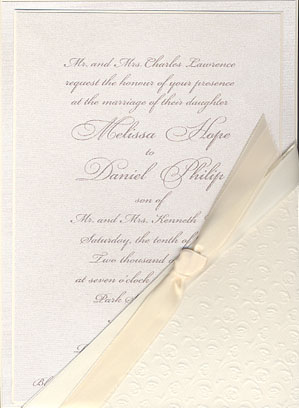 Mr. and Mrs. Charles Lawrence
request the honour of your presence
at the marriage of their daughter
Melissa Hope
to
Daniel Philip
son of
Mr. and Mrs. Kenneth
Saturday, the tenth of
Two thousand
at seven o'clock
Park